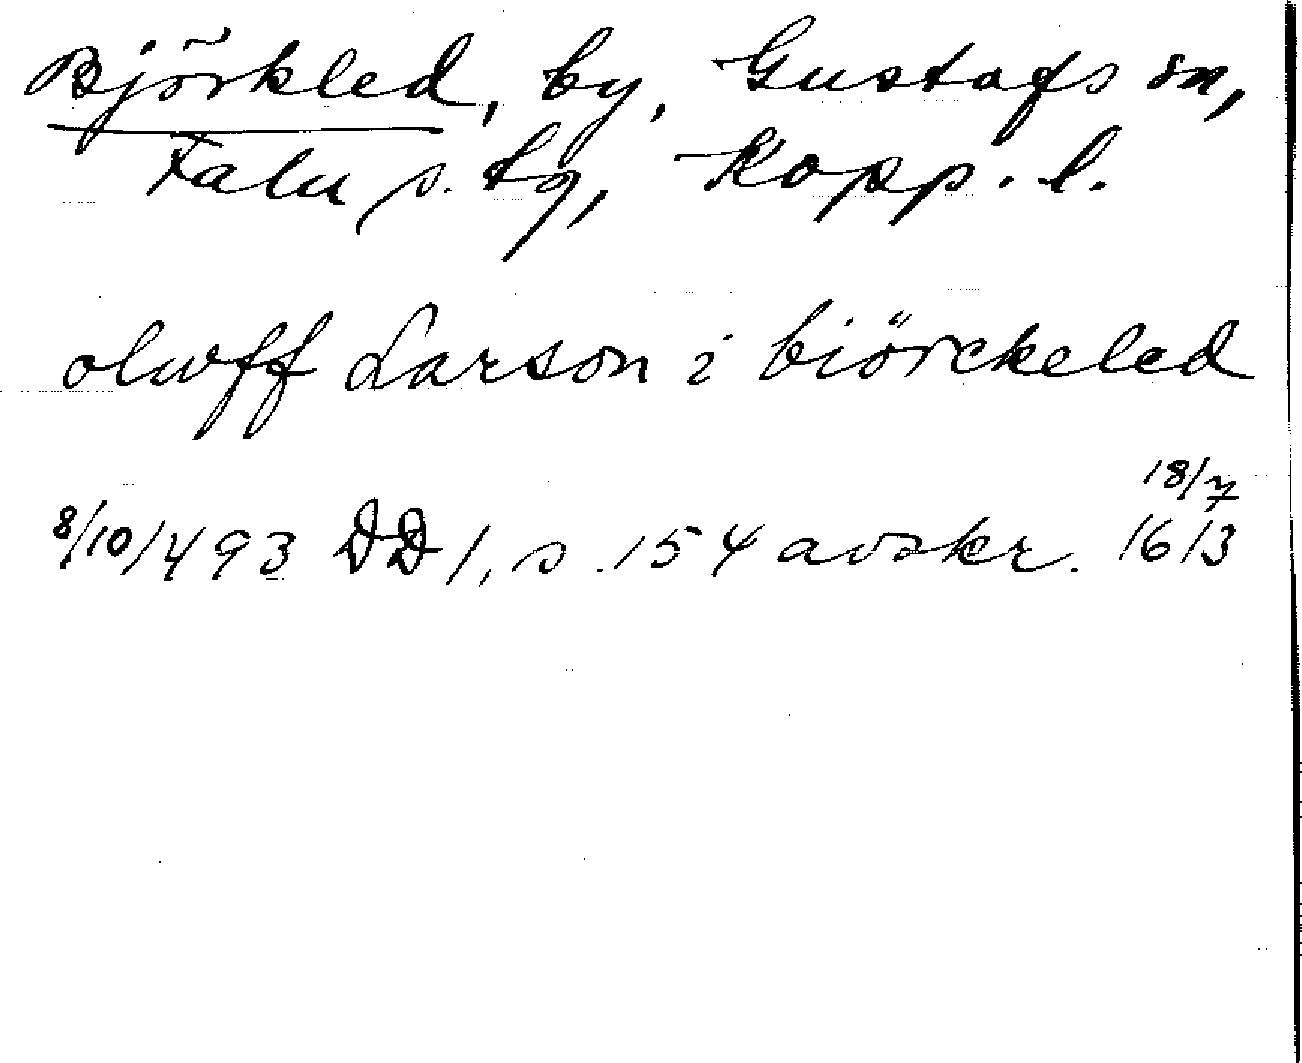 Björkled, by, Gustafs sn,
Falu s. tg, Kopp. l.
oluff Larson i biörckeled
8/10 1493 DD 1, s. 154 avskr. 18/7 1613